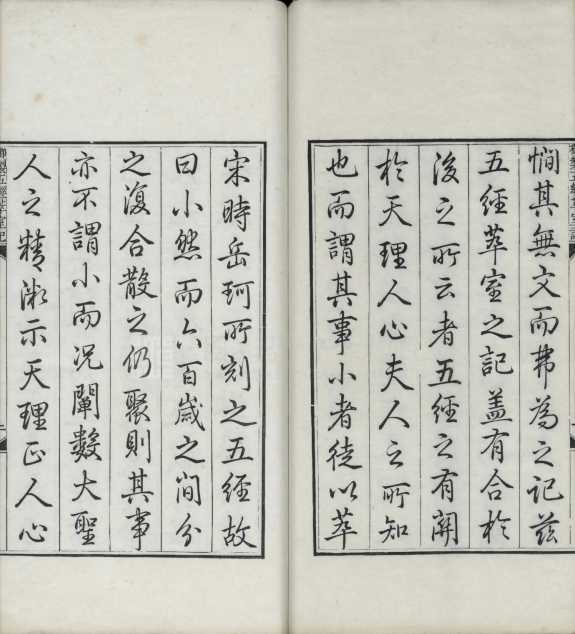 憪其無文而弗為之記茲
五經萃室之記蓋有合於
後之所云者五經之有關
於天理人心夫人之所知
也而謂其事小者徒以萃
宋時岳珂所刻之五經故
曰小然而六百歲之間分
之復合散之仍聚則其事
亦不謂小而況闡數大聖
人之精微示天理正人心